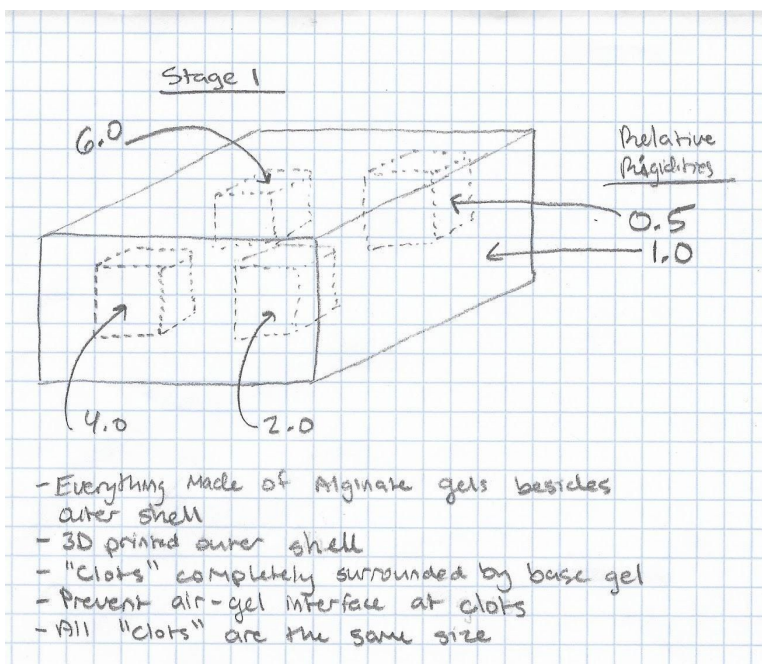 Stage 1
6.0
Relative
Rigidities
0.5
1.0
4.0
2.0
- Everything Made of Alginate gels besides
outer shell
- 3D printed outer shell
- "Clots" completely surrounded by base gel
- Prevent air-gel interface at clots
- All "clots" are the same size